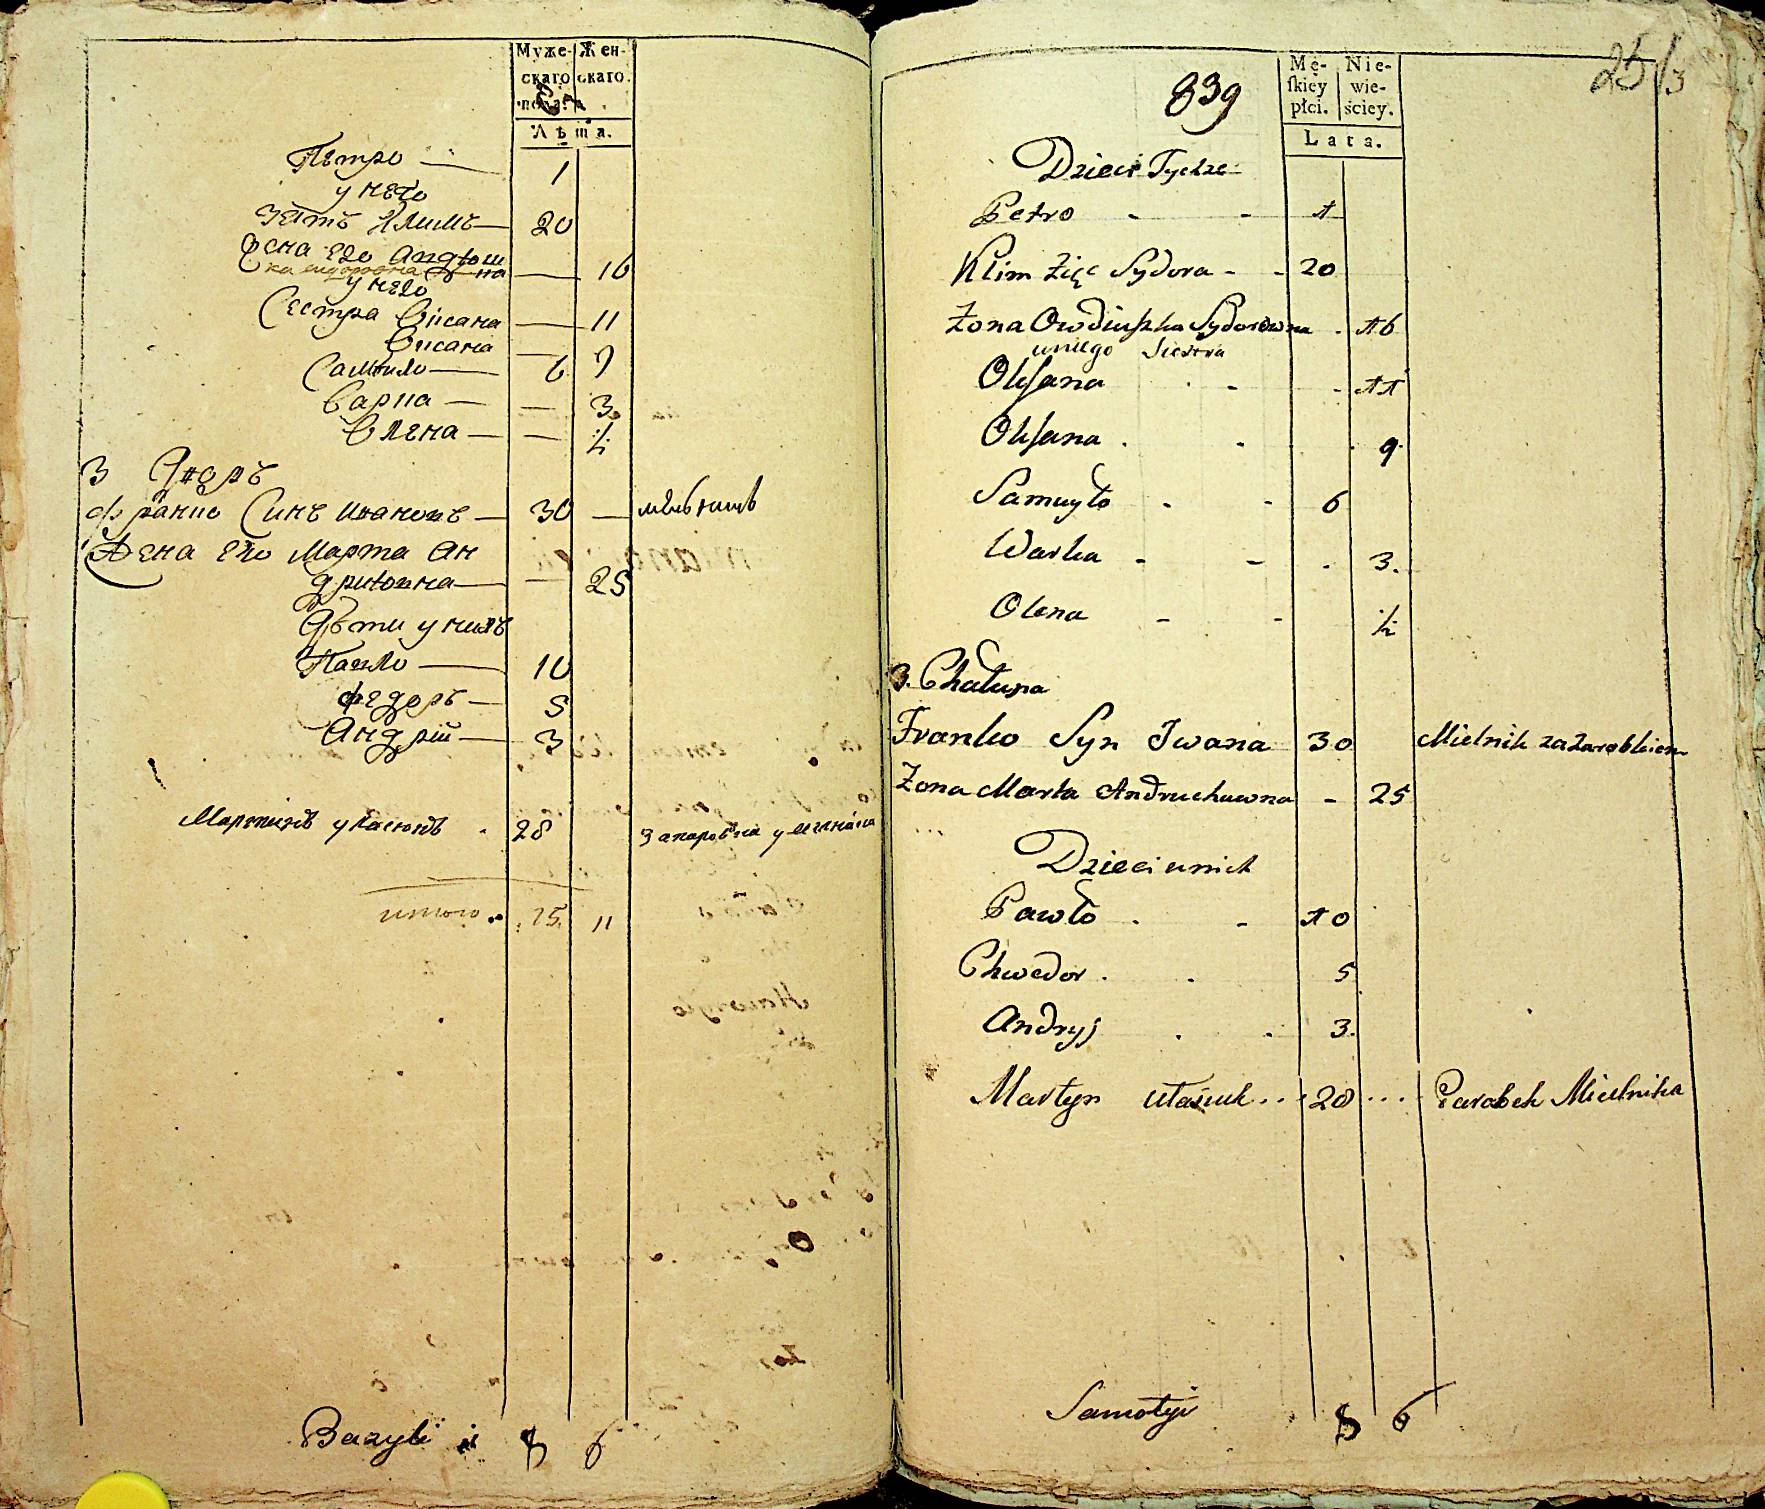 Муже- Жен-
скаго скаго.
пола.
Лѣта.
Петро — 1
у него
зять Климъ — 20
Жена его Андюш
ка сидоровна — 16
у него
Сестра Ѡксана — 11
Ѡксана — 9
Самойло — 6
Варка — — 3
Ѡлена — — ½
3 Дворъ
Франко Синъ Ивановъ — 30 — мѣлникъ
Жена его Марта Ан
друховна — — 25
Дѣти у нихъ
Павло — 10
Федоръ — 5
Андрій — 3
Мартинъ 28
итого 15 11
Bazyli 8 6
25/3
839
Mę- Nie-
skiey wie-
płci. ściey.
Lata.
Dzieci Tychże
Petro - - 1
Klim Zięc Sydora - - 20
Żona Owdiuszka Sydorowna . 16
uniego Siostra
Oksana - - 11
Oksana . . . 9
Samuyło . - 6
Warka - - . 3.
Olena - - ½
3. Chałupa
Franko Syn Iwana 30 Mielnik za Zarobkiem
Żona Marta Andruchowna - 25
Dzieci unich
Pawło . - 10
Chwedor . . 5
Andryj . . 3.
Martyn Własiuk ... 28 ... Parobek Mielnika
Samotyi 8 6